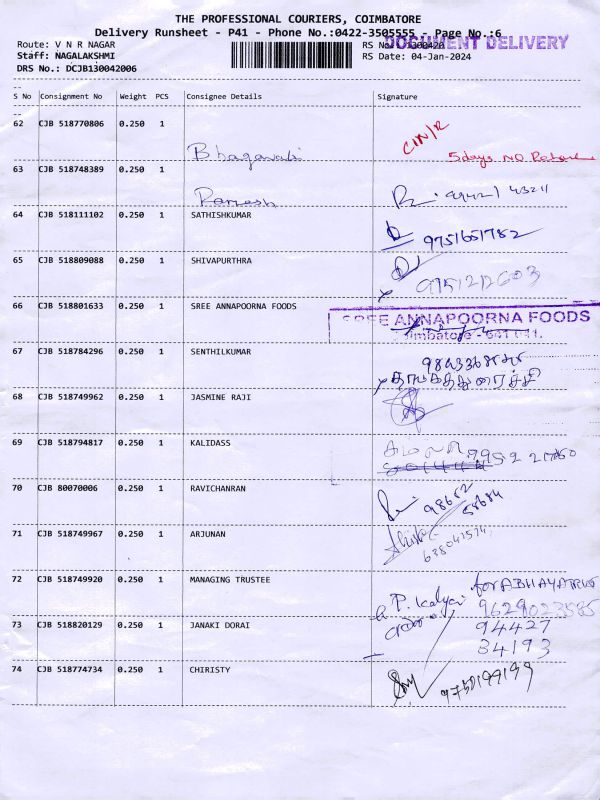 THE PROFESSIONAL COURIERS, COIMBATORE
Delivery Runsheet - P41 - Phone No.:0422-3505555 - Page No.:6
DOCUMENT DELIVERY
Route: V N R NAGAR RS No.: 1300420
Staff: NAGALAKSHMI RS Date: 04-Jan-2024
DRS No.: DCJB130042006
S No Consignment No Weight PCS Consignee Details Signature
62 CJB 518770806 0.250 1
Bhagavati 5days NO
63 CJB 518748389 0.250 1
Ramesh
64 CJB 518111102 0.250 1 SATHISHKUMAR
9751651782
65 CJB 518809088 0.250 1 SHIVAPURTHRA
9751212603
66 CJB 518801633 0.250 1 SREE ANNAPOORNA FOODS
SREE ANNAPOORNA FOODS
67 CJB 518784296 0.250 1 SENTHILKUMAR
68 CJB 518749962 0.250 1 JASMINE RAJI
69 CJB 518794817 0.250 1 KALIDASS
70 CJB 80070006 0.250 1 RAVICHANRAN
98652
58684
71 CJB 518749967 0.250 1 ARJUNAN
72 CJB 518749920 0.250 1 MANAGING TRUSTEE
P. Kalyani
9629023585
73 CJB 518820129 0.250 1 JANAKI DORAI
94427
34193
74 CJB 518774734 0.250 1 CHIRISTY
9750199199